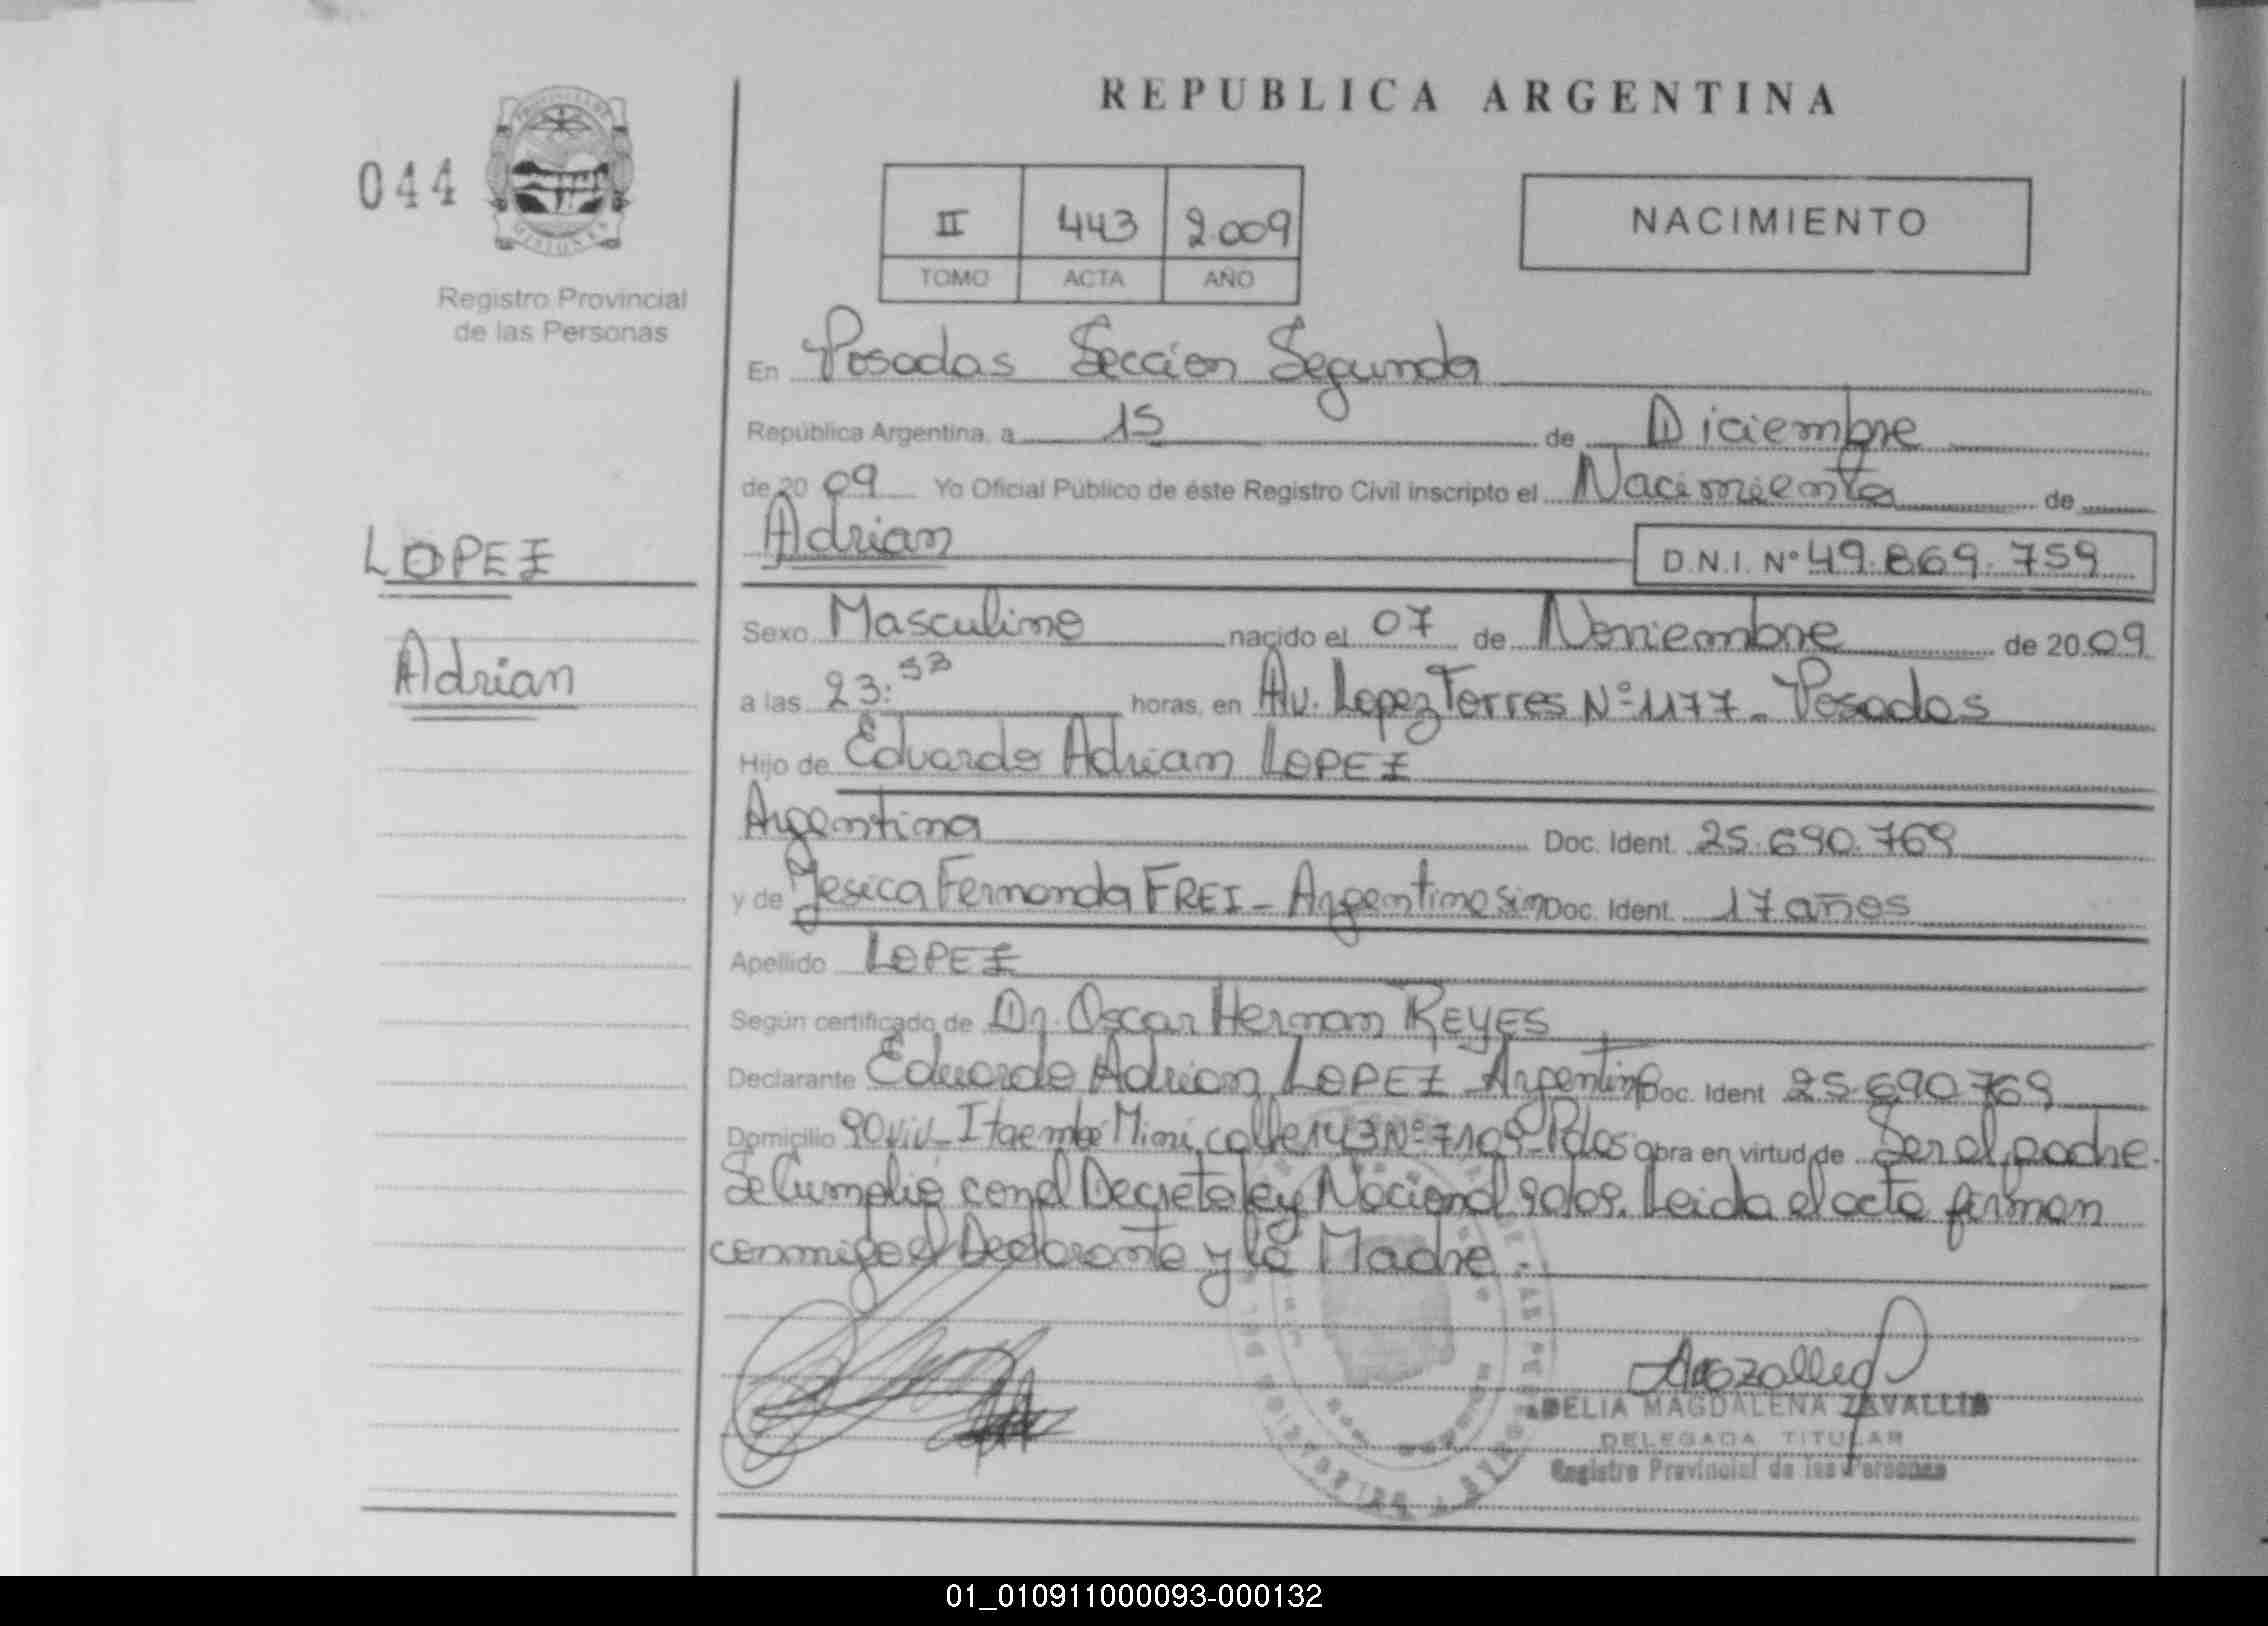 REPUBLICA ARGENTINA
044
II 443 2.009
TOMO ACTA AÑO
NACIMIENTO
Registro Provincial
de las Personas
En Posadas Seccion Segunda
República Argentina, a 15 de Diciembre
de 20 09 Yo Oficial Público de éste Registro Civil inscripto el Nacimiento de
Adrian D.N.I. Nº 49.869.759
LOPEZ
Adrian
Sexo Masculino nacido el 07 de Noviembre de 20 09
a las 23:53 horas, en Av. Lopez Torres Nº 1177 - Posadas
Hijo de Eduardo Adrian LOPEZ
Argentina Doc. Ident. 25.690.769
y de Yesica Fernanda FREI - Argentina sin Doc. Ident. 17 años
Apellido LOPEZ
Según certificado de Dr. Oscar Hernan REYES
Declarante Eduardo Adrian LOPEZ Argentino Doc. Ident 25.690.769
Domicilio 90 viv - Itaembé Mini, calle 143 Nº 7109 - Pdas obra en virtud de Ser el padre.
Se Cumplió con el Decreto ley Nacional Leida el acta firman
conmigo el Declarante y la Madre.-
DELIA MAGDALENA ZAVALLIA
DELEGADA TITULAR
Registro Provincial de las Personas
01_010911000093-000132